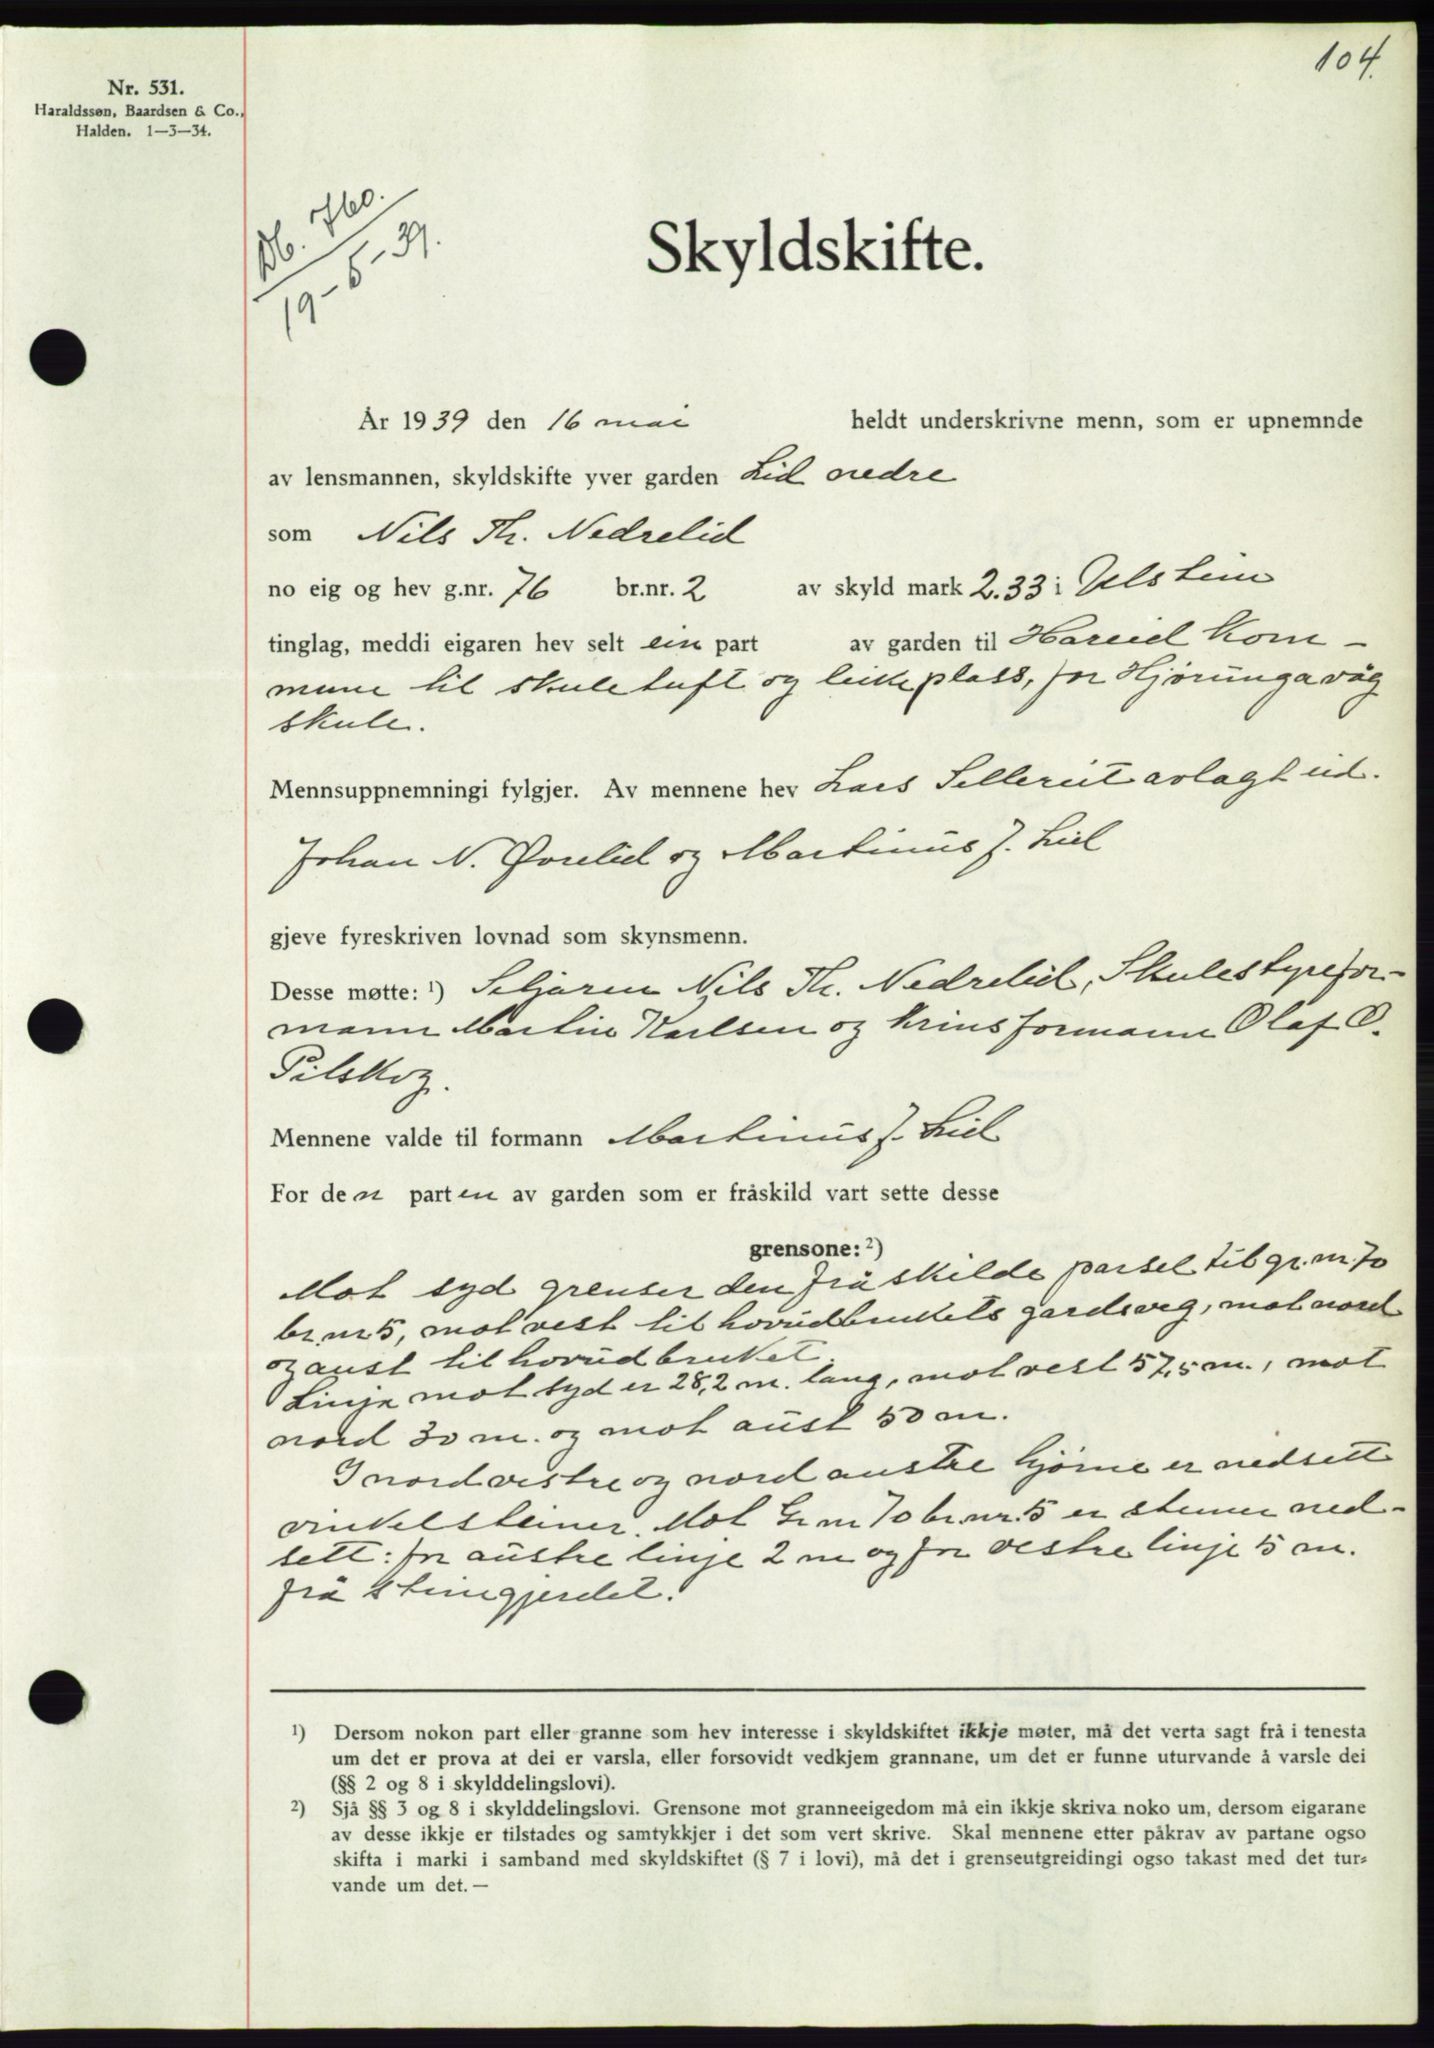 104.
Nr. 531.
Haraldssøn, Baardsen & Co.,
Halden. 1—3—34.
Db. 760.
19-6-39.
Skyldskifte.
År 1939 den 16 mai heldt underskrivne menn, som er upnemnde
av lensmannen, skyldskifte yver garden Lid nedre
som Nils Th. Nedrelid
no eig og hev g.nr. 76 br.nr. 2 av skyld mark 2.33 i Ulstein
tinglag, meddi eigaren hev selt ein part av garden til Hareid kom-
mune til skuletuft og leikeplass, for Hjørungavåg
skule.
Mennsuppnemningi fylgjer. Av mennene hev Lars avlagt eid.
Johan N. Øvrelid og Martinus J. Liel
gjeve fyreskriven lovnad som skynsmenn.
Desse møtte: ¹) Seljaren Nils Th. Nedrelid, Skulestyrefor-
mann Martin Karlsen og krinsformann Olaf O.
Pilskog.
Mennene valde til formann Martinus J. Liel
For den parten av garden som er fråskild vart sette desse
grensone: ²)
Mot syd grenser den fråskilde parsel til gr.nr. 70
br.nr 5, mot vest til hovudbrukets gardsveg, mot nord
og aust til hovudbruket.
Linja mot syd er 28,2 m. lang, mot vest 57,5 m., mot
nord 30 m. og mot aust 50 m.
I nordvestre og nordaustre hjørne er nedsett
vinkelsteiner. Mot Gr.nr 70 br.nr. 5 er steiner ned-
sett: for austre linje 2 m og for vestre linje 5 m.
frå steingjerdet.
¹) Dersom nokon part eller granne som hev interesse i skyldskiftet ikkje møter, må det verta sagt frå i tenesta
um det er prova at dei er varsla, eller forsovidt vedkjem grannane, um det er funne uturvande å varsle dei
(§§ 2 og 8 i skylddelingslovi).
²) Sjå §§ 3 og 8 i skylddelingslovi. Grensone mot granneeigedom må ein ikkje skriva noko um, dersom eigarane
av desse ikkje er tilstades og samtykkjer i det som vert skrive. Skal mennene etter påkrav av partane ogso
skifta i marki i samband med skyldskiftet (§ 7 i lovi), må det i grenseutgreidingi ogso takast med det tur-
vande um det. —